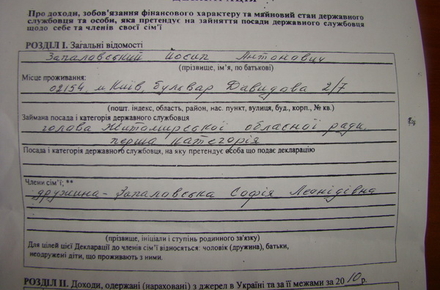 Про доходи, зобов'язання фінансового характеру та майновий стан державного
службовця та особи, яка претендує на зайняття посади державного службовця
щодо себе та членів своєї сім'ї
РОЗДІЛ I. Загальні відомості
Запаловський Йосип Антонович
(прізвище, ім'я, по батькові)
Місце проживання:
02154, м.Київ, бульвар Давидова 2/7
(пошт. індекс, область, район, нас. пункт, вулиця, буд., корп., № кв.)
Займана посада і категорія державного службовця
голова Житомирської обласної ради,
перша категорія
Посада і категорія державного службовця, на яку претендує особа що подає декларацію
Члени сім'ї; **
дружина - Запаловська Софія Леонідівна
(прізвище, ініціали і ступінь родинного зв'язку)
Для цілей цієї Декларації до членів сім'ї відносяться: чоловік (дружина), батьки,
неодружені діти, що проживають з ними.
РОЗДІЛ II. Доходи, одержані (нараховані) з джерел в Україні та за її межами за 2010 р.